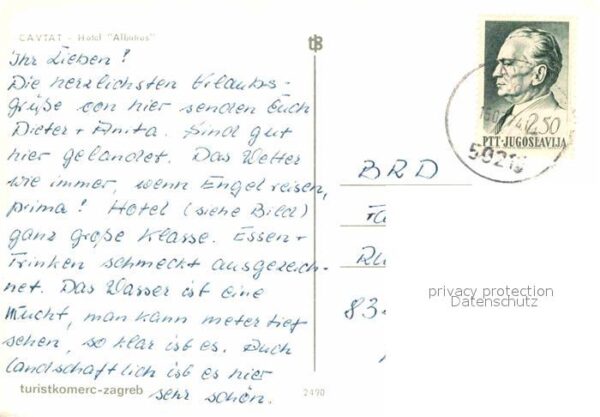 CAVTAT - Hotel "Albatros"
Ihr Lieben!
Die herzlichsten Urlaubs-
grüße von hier senden Euch
Dieter + Anita. Sind gut
hier gelandet. Das Wetter
wie immer, wenn Engel reisen,
prima! Hotel (siehe Bild)
ganz große Klasse. Essen +
Trinken schmeckt ausgezeich-
net. Das Wasser ist eine
Wucht, man kann meter tief
sehen, so klar ist es. Auch
landschaftlich ist es hier
sehr schön.
turistkomerc-zagreb
2490
tz
2,50
PTT-JUGOSLAVIJA
BRD
83
privacy protection
Datenschutz